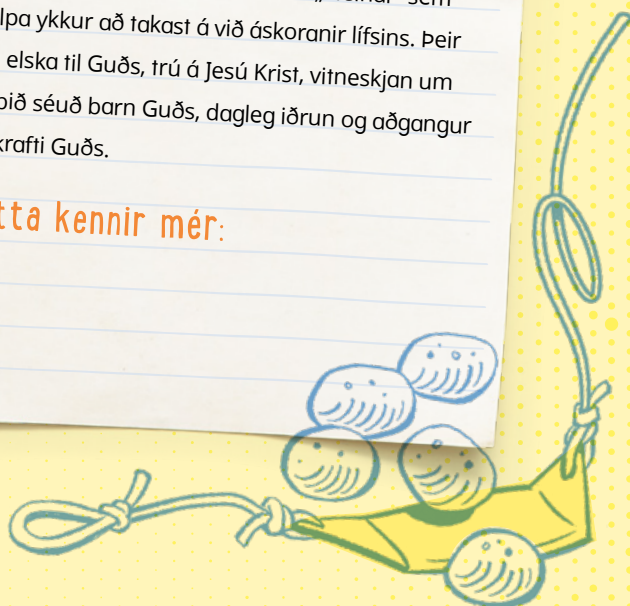 að takast á við áskoranir lífsins. Þeir
elska til Guðs, trú á Jesú Krist, vitneskjan um
séuð barn Guðs, dagleg iðrun og aðgangur
krafti Guðs.
kennir mér: